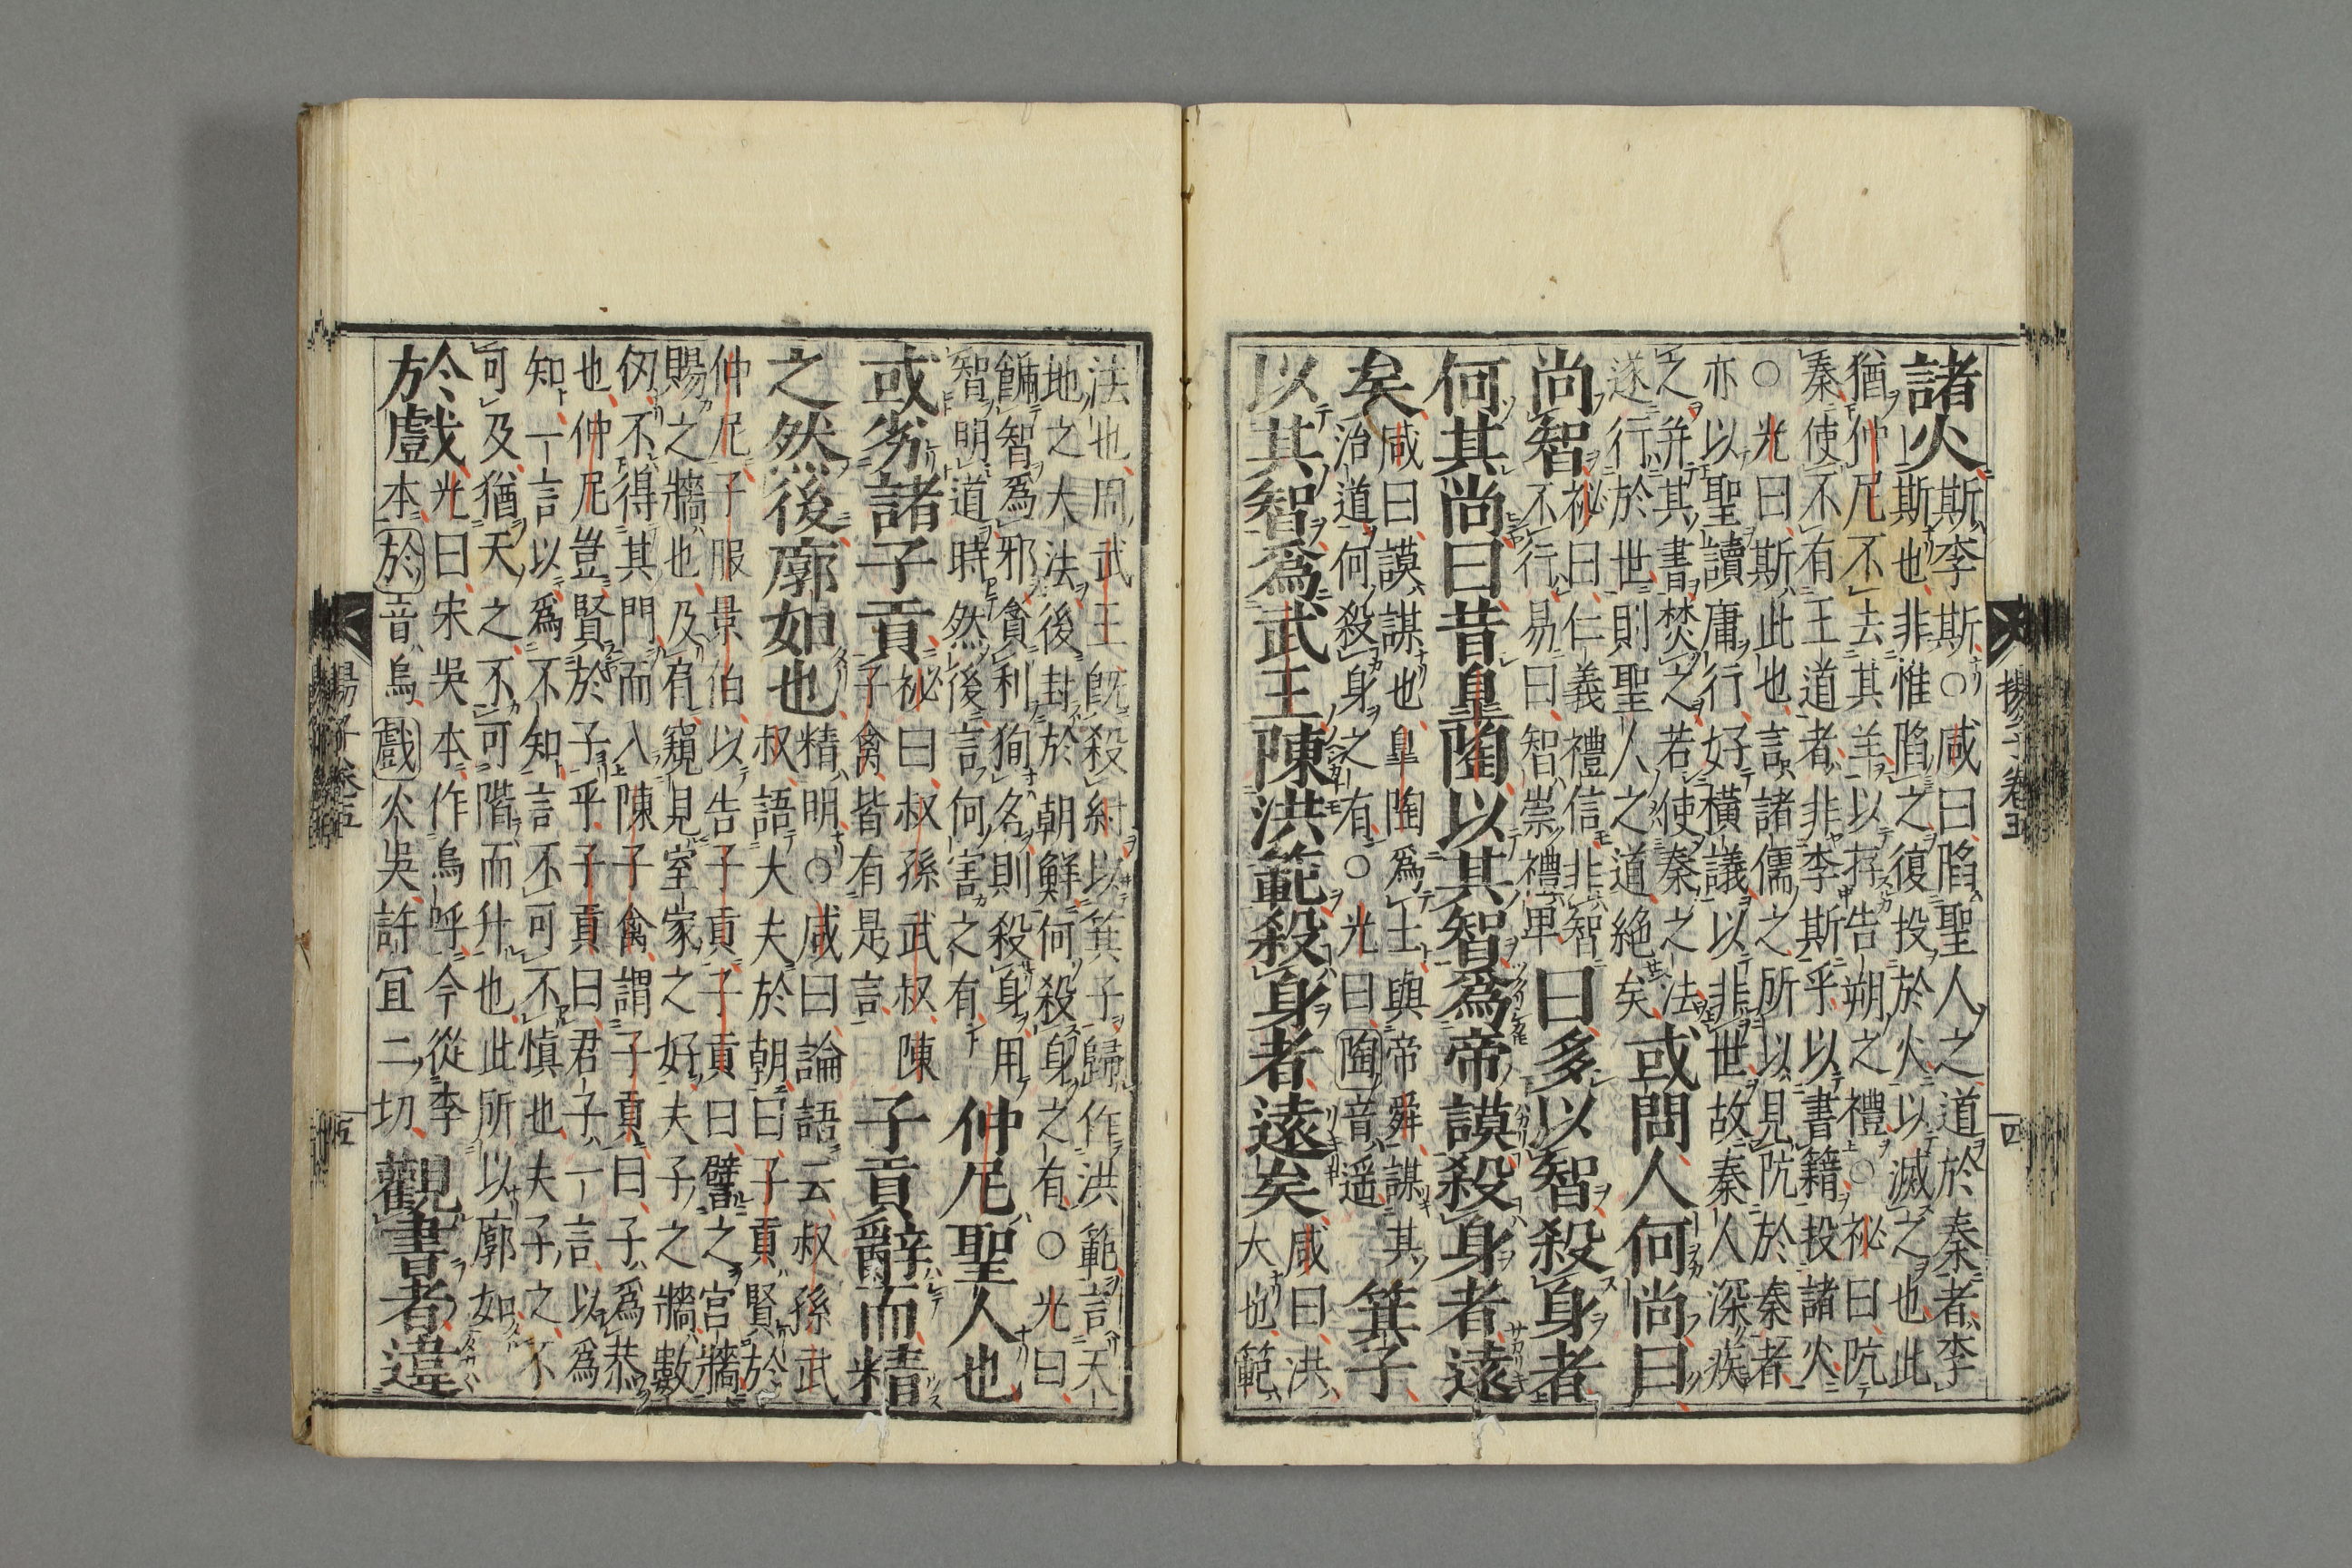 諸火
斯李斯○咸曰陷聖人之道於秦者李
斯也非惟陷之復投於火以滅之也此
猶仲尼不去其羊以存告朔之禮○祕曰阬
秦使不有王道者非李斯乎以書籍投諸火
○光曰斯此也言諸儒之所以見阬於秦者
亦以聖讀庸行好橫議以非世故秦人深疾
之并其書焚之若使秦之法
遂行於世則聖人之道絶矣
或問人何尚曰
尚智
祕曰仁義禮信非智
不行易曰智崇禮卑
曰多以智殺身者
何其尚曰昔皐陶以其智爲帝謨殺身者遠
矣
咸曰謨謀也皐陶爲士與帝舜謀其
治道何殺身之有○光曰陶音遥
箕子
以其智爲武王陳洪範殺身者遠矣
咸曰洪
大也範
揚子卷五
四
法也周武王旣殺紂以箕子歸作洪範言天
地之大法後封於朝鮮何殺身之有○光曰
餙智爲邪貪利狥名則殺身用
智明道時然後言何害之有
仲尼聖人也
或劣諸子貢
祕曰叔孫武叔陳
子禽皆有是言
子貢辭而精
之然後廓如也
精明○咸曰論語云叔孫武
叔語大夫於朝曰子貢賢於
仲尼子服景伯以告子貢子貢曰譬之宮牆
賜之牆也及肩窺見室家之好夫子之牆數
仭不得其門而入陳子禽謂子貢曰子爲恭
也仲尼豈賢於子乎子貢曰君子一言以爲
知一言以爲不知言不可不愼也夫子之不
可及猶天之不可階而升也此所以廓如
於戲
光曰宋吳本作烏呼今從李
本於音烏戲火吳許宜二切
觀書者違
揚子卷五
五